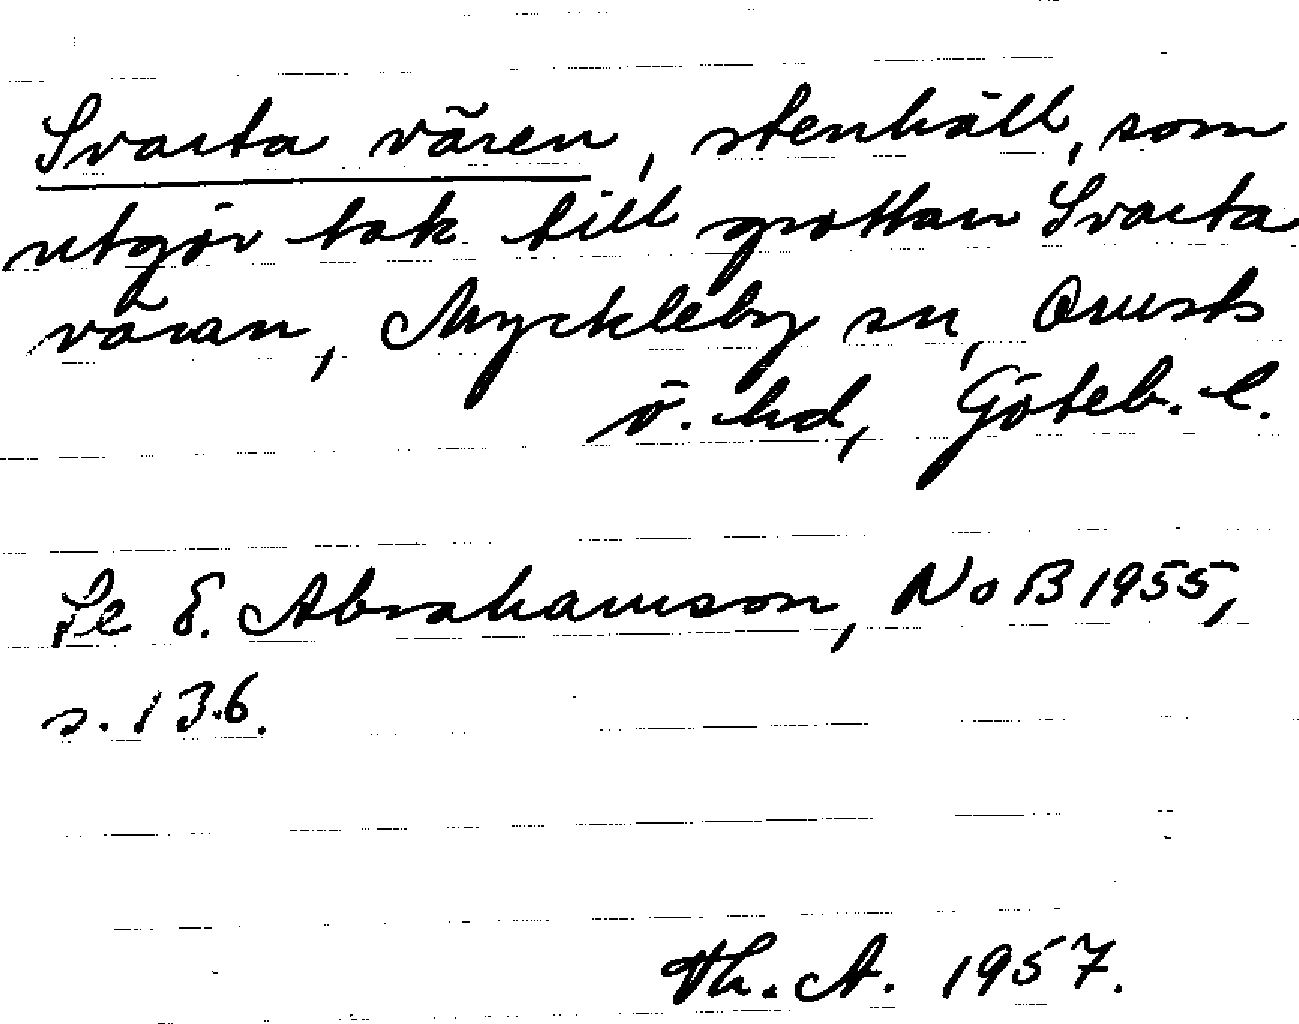 Svarta vären, stenhäll, som
utgör tak till grottan Svarta
väran, Myckleby sn, Orusts
ö. hd, Göteb. l.
Se E. Abrahamson, NoB 1955,
s. 136.
Th. A. 1957.